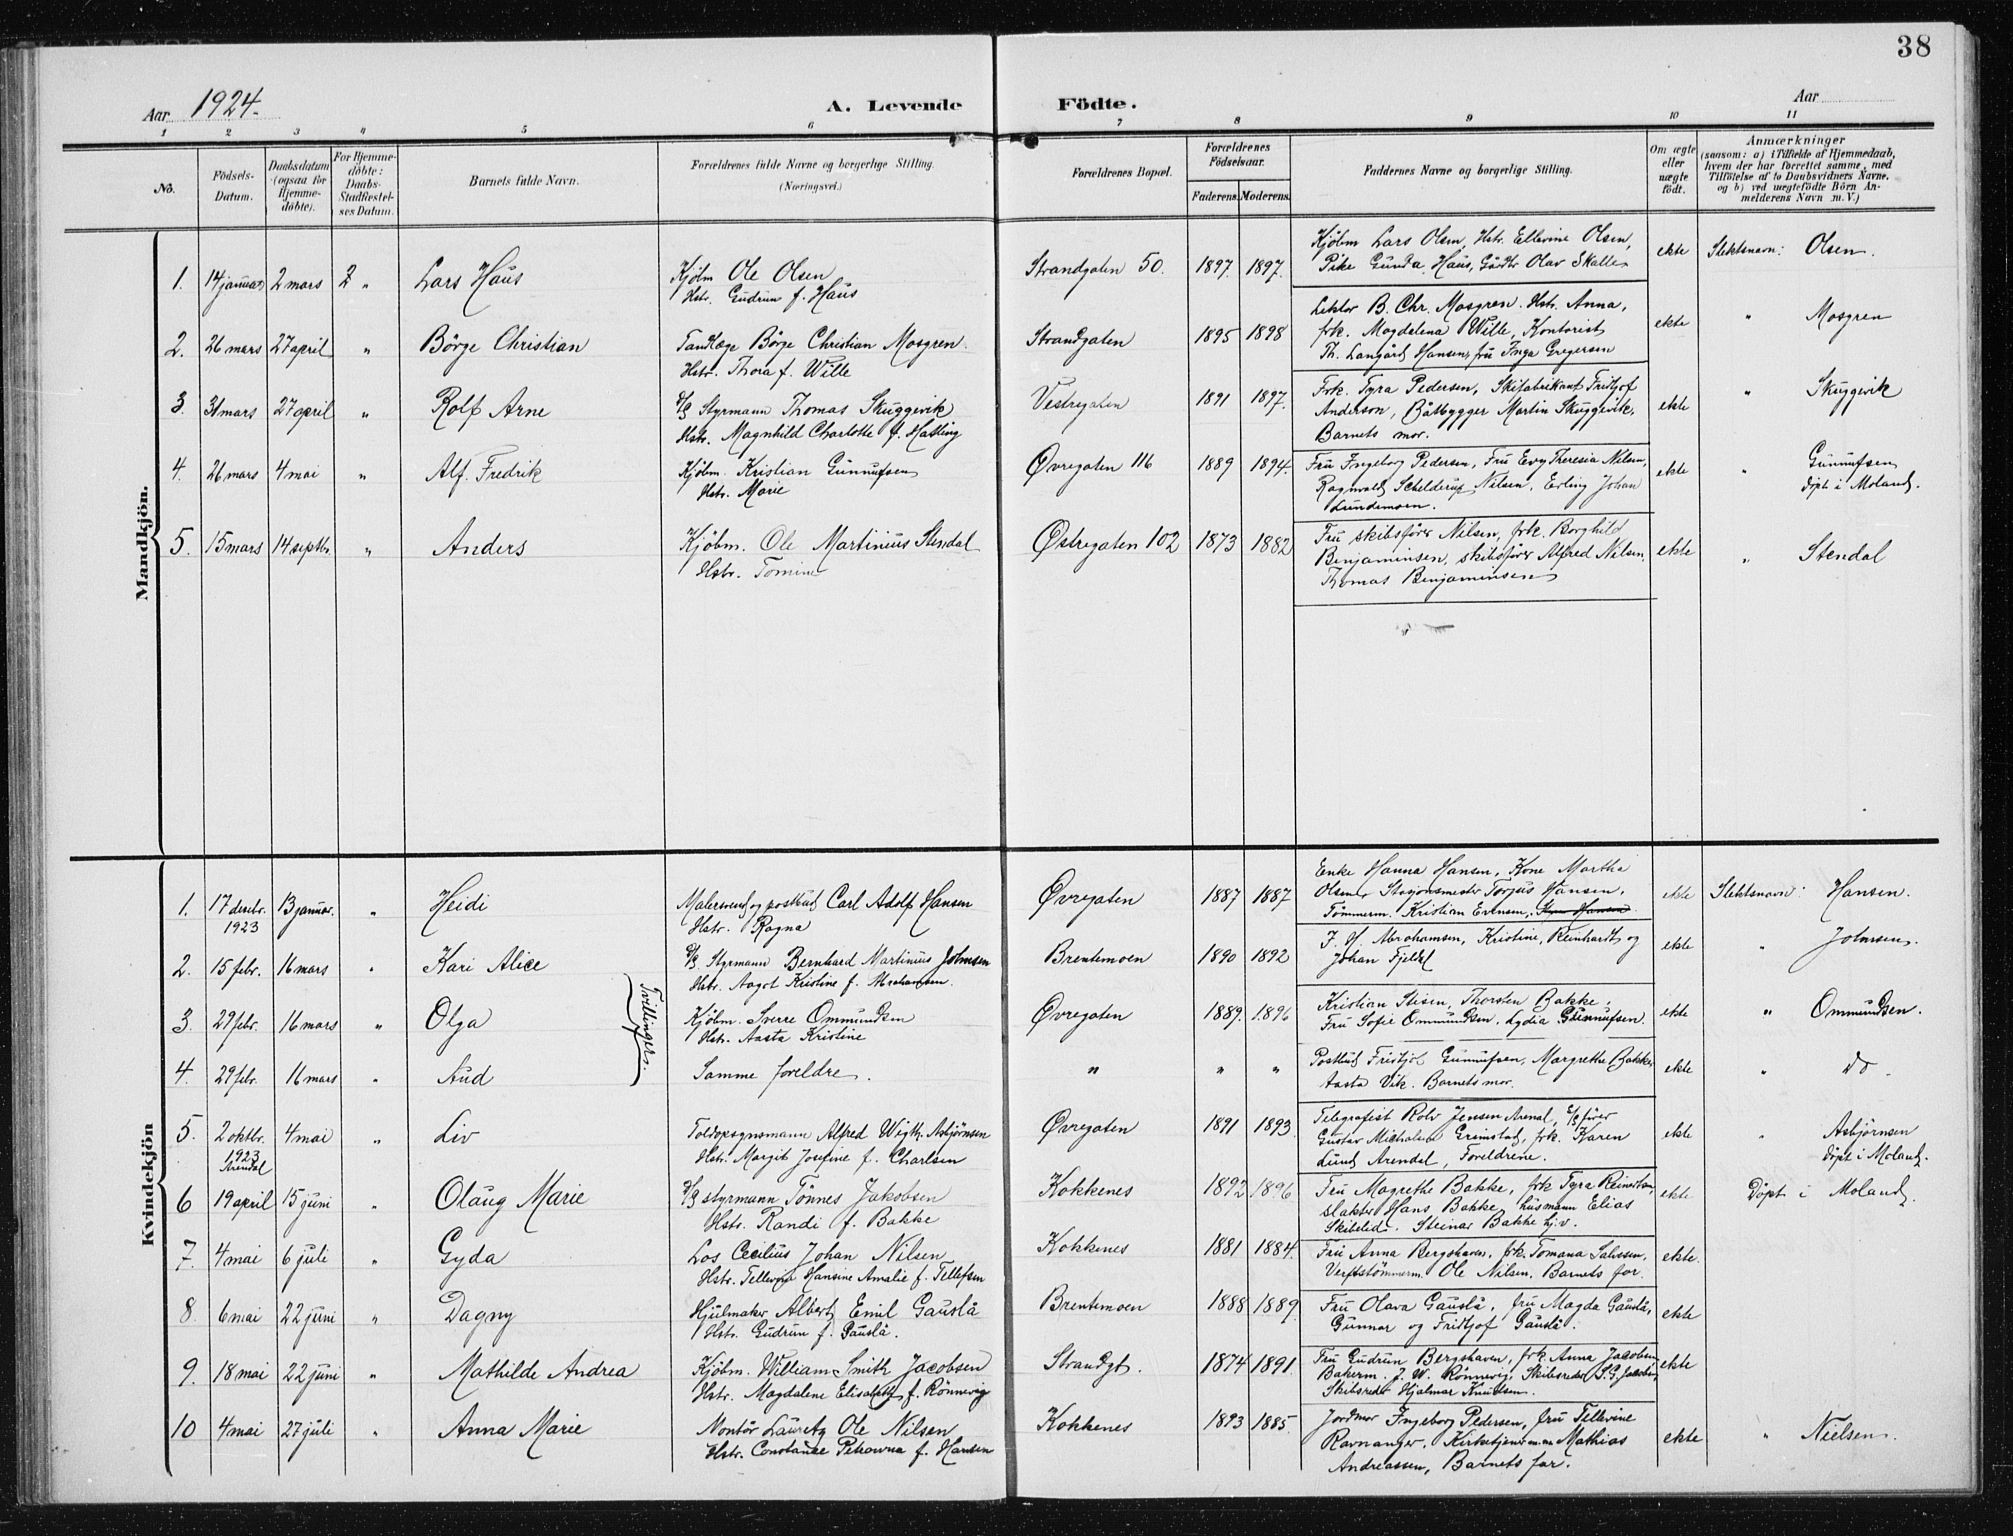 38
Aar 1924.
A. Levende Födte.
Aar
1 2 3 4 5 6 7 8 9 10 11
No.
Födsels-Datum.
Daabsdatum (ogsaa for Hjemme-döbte).
For Hjemme-döbte: Daabs-Stadfæstel-ses Datum.
Barnets fulde Navn.
Forældrenes fulde Navne og borgerlige Stilling. (Næringsvei.)
Forældrenes Bopæl.
Forældrenes Födselsaar.
Faderens. Moderens.
Faddernes Navne og borgerlige Stilling.
Om ægte eller uægte födt.
Anmærkninger
(saasom: a) i Tilfælde af Hjemmedaab,
hvem der har forrettet samme, med
Tilföielse af to Daabsvidners Navne.
og b) ved uægtefödte Börn An-
melderens Navn m. V.)
Mandkjön.
1. 14 januar 2 mars 2 " Lars Haus
Kjöbm Ole Olsen
Hstr. Gudrun f. Haus
Strandgaten 50. 1897. 1897.
Kjöbm Lars Olsen, Hstr. Ellevine Olsen,
Pike Gunda Haus, Gårdbr Olav Skalle
ekte Slektsnavn: Olsen.
2. 26 mars 27 april " Börge Christian
Tandlæge Börge Christian Mosgren.
Hstr. Thora f. Wille
Strandgaten 1895 1898
Lektor B. Chr. Mosgren. Hstr. Anna,
frk. Magdelena Wille, Kontorist
Th. Langård Hansen, fru Inga Gregersen
ekte " Mosgren
3. 31 mars 27 april " Rolf Arne
Styrmann Thomas Skuggevik
Hstr. Magnhild Charlotte f. Hatling
Vestregaten 1891 1897.
Frk. Tyra Pedersen, Skifabrikant Fritjof
Anderson, Båtbygger Martin Skuggevik,
Barnets mor.
ekte " Skuggevik
4. 26 mars 4 mai " Alf Fredrik
Kjöbm. Kristian Gunnufsen
Hstr. Marie
Øvregaten 116 1889 1894.
Fru Ingeborg Pedersen, Fru Evy Theresia Nilsen,
Ragnvald Schelderup Nilsen, Erling Johan
Gundersen.
ekte " Gunnufsen
döpt i Moland.
5. 15 mars 14 septbr. " Anders
Kjöbm. Ole Martinius Stendal
Hstr. Tomine
Østregaten 102 1873 1882
Fru skibsförer Nilsen, frk. Borghild
Benjaminsen, skibsförer Alfred Nilsen,
Thomas Benjaminsen
ekte " Stendal
Kvindekjön
1. 17 desebr. 1923 13 januar. " Heidi
Malersvend og postbud Carl Adolf Hansen
Hstr. Ragna
Øvregaten 1887 1887
Enke Hanna Hansen, Kone Martha
Olsen, Stasjonsmester Torjus Hansen,
Tömmerm. Kristian Evensen,
ekte Slektsnavn: Hansen.
2. 15 febr. 16 mars " Kari Alice
Styrmann Bernhard Martinius Johnsen
Hstr. Aagot Kristine f. Abrahamsen.
Brentemoen 1890 1892
J. H. Abrahamsen, Kristine, Reinhardt og
Johan Fjeldal
ekte " Johnsen.
Tvillinger.
3. 29 febr. 16 mars " Olga
Kjöbm. Sverre Ommundsen
Hstr. Aasta Kristine
Øvregaten 1889. 1896
Kristian Stisen, Thorsten Bakke,
Fru Sofie Ommundsen, Lydia Gunnufsen.
ekte " Ommundsen.
4. 29 febr. 16 mars " Aud
Samme foreldre.
" " "
Postbud Fritjof Gunnufsen, Margrethe Bakke,
Aasta Vik. Barnets mor.
ekte " do.
5. 2 oktbr. 1923 Arendal 4 mai " Liv
Toldopsynsmann Alfred Wigth. Asbjörnsen
Hstr. Margit Josefine f. Charlsen
Øvregaten 1891 1893.
Telegrafist Rolv Jensen Arendal, förer
Gustav Michalsen Grimstad, frk. Karen
Lund Arendal, Foreldrene.
ekte " Asbjörnsen
döpt i Moland.
6 19 april 15 juni " Olaug Marie
styrmann Tönnes Jakobsen
Hstr. Randi f. Bakke
Kokkenes 1892 1896
Fru Magrethe Bakke, frk Tyra Reinertsen,
slakter Hans Bakke, husmann Elias
Skibsled. Steinar Bakke
ekte Döpt i Moland.
7. 4 mai 6 juli " Gyda
Los Cecilius Johan Nilsen
Hstr. Tellevine Hansine Amalie f. Tellefsen
Kokkenes 1881 1884.
Fru Anna Bergshaven, frk. Tomana Salvesen,
Verftstömmerm. Ole Nilsen, Barnets far.
ekte.
8. 6 mai 22 juni " Dagny
Hjulmaker Albert Emil Gauslå
Hstr. Gudrun f. Gauslå.
Brentemoen 1888 1889.
Fru Olava Gauslå, fru Magda Gauslå,
Gunnar og Fridtjof Gauslå.
ekte
9. 18 mai 22 juni " Mathilde Andrea
Kjöbm. William Smith Jacobsen
Hstr. Magdalene Elisabeth f. Rönnevig
Strandgt. 1874 1891.
Fru Gudrun Bergshaven, frk. Anna Jacobsen,
Bakerm. J. W. Rönnevig, Skibsreder S. G. Jacobsen,
Skibsreder Hjalmar Knudsen.
ekte
10 4 mai 27 juli " Anna Marie
Montör Lauretz Ole Nilsen
Hstr. Constance Petrowna f. Hansen
Kokkenes 1893 1885.
Jordmor Ingeborg Pedersen, fru Tellevine
Ravnanger, Kirketjener m.m. Mathias
Andreassen, Barnets far.
ekte " Nielsen.